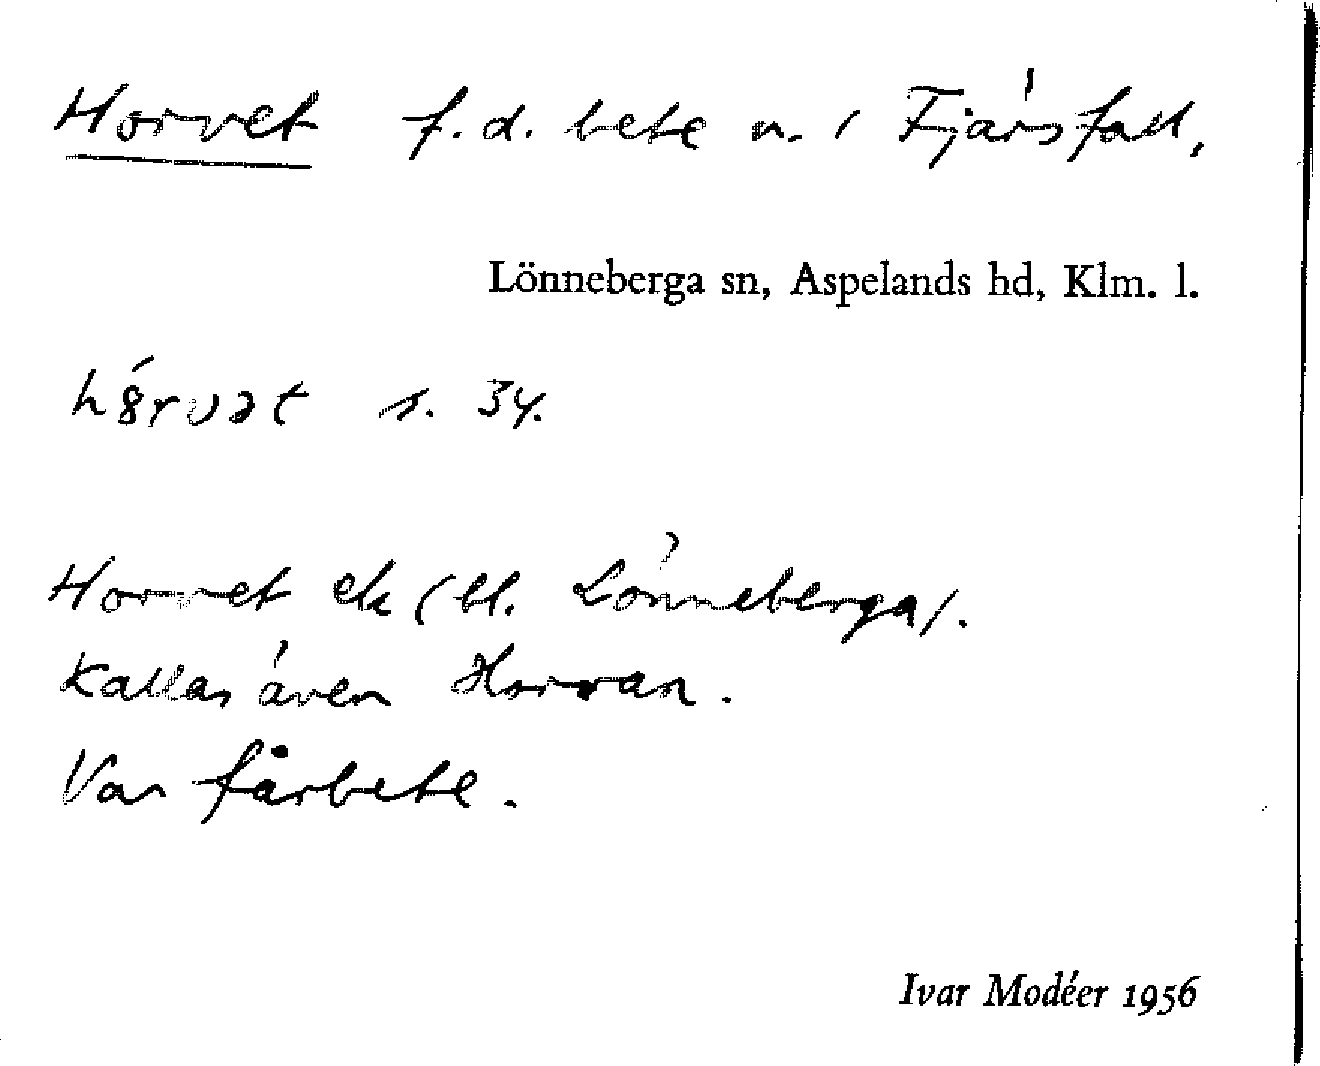 Horvet f.d. bete n. i Fjärsfall,
Lönneberga sn, Aspelands hd, Klm. l.
s. 34.
Horvet ek (bl. Lönneberga).
Kallas även Horvan.
Var fårbete.
Ivar Modéer 1956